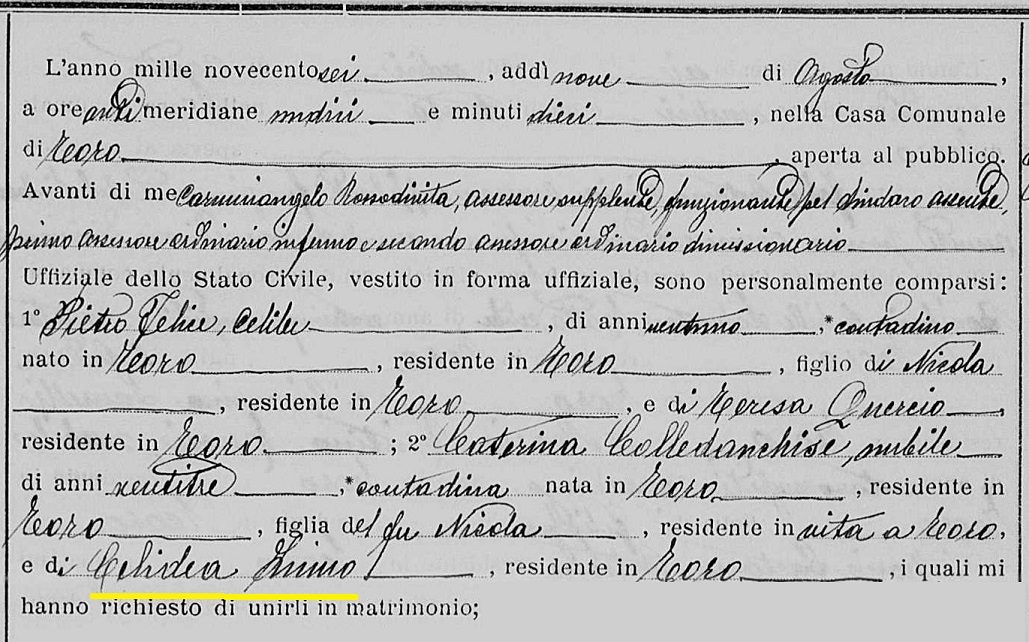 L'anno mille novecentosei, addì nove di Agosto,
a ore antimeridiane undici e minuti dieci, nella Casa Comunale
di Toro, aperta al pubblico.
Avanti di me Carminangelo, assessore supplente, funzionante pel Sindaco assente,
primo assessore ordinario infermo e secondo assessore ordinario dimissionario
Uffiziale dello Stato Civile, vestito in forma uffiziale, sono personalmente comparsi:
1° Pietro Felice, celibe, di anni ventuno, *contadino
nato in Toro, residente in Toro, figlio di Nicola
, residente in Toro, e di Teresa Quercio,
residente in Toro; 2° Caterina Colledanchise, nubile
di anni ventitre, *contadina nata in Toro, residente in
Toro, figlia del fu Nicola, residente in vita a Toro,
e di Celidea, residente in Toro, i quali mi
hanno richiesto di unirli in matrimonio;